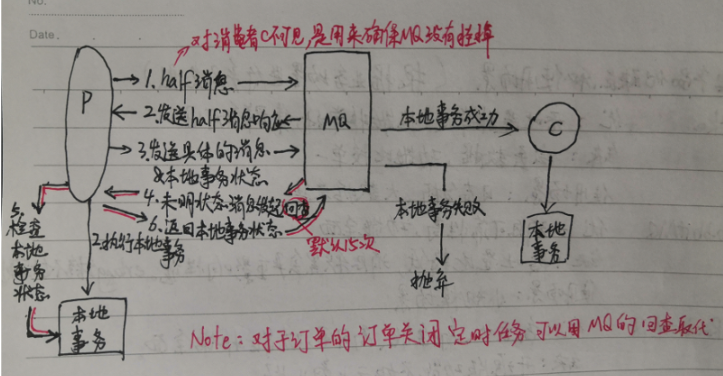 No.
Date.
对消费者C不可见,是用来确保MQ没有挂掉
P
1.half消息
2.发送half消息响应
3.发送具体的消息
&本地事务状态
4.未明状态消息发起回查
6.返回本地事务状态
默认15次
5.检查本地事务状态
2.执行本地事务
本地事务
MQ
本地事务成功
C
本地事务
本地事务失败
抛弃
Note:对于订单的订单关闭定时任务可以用MQ的回查取代